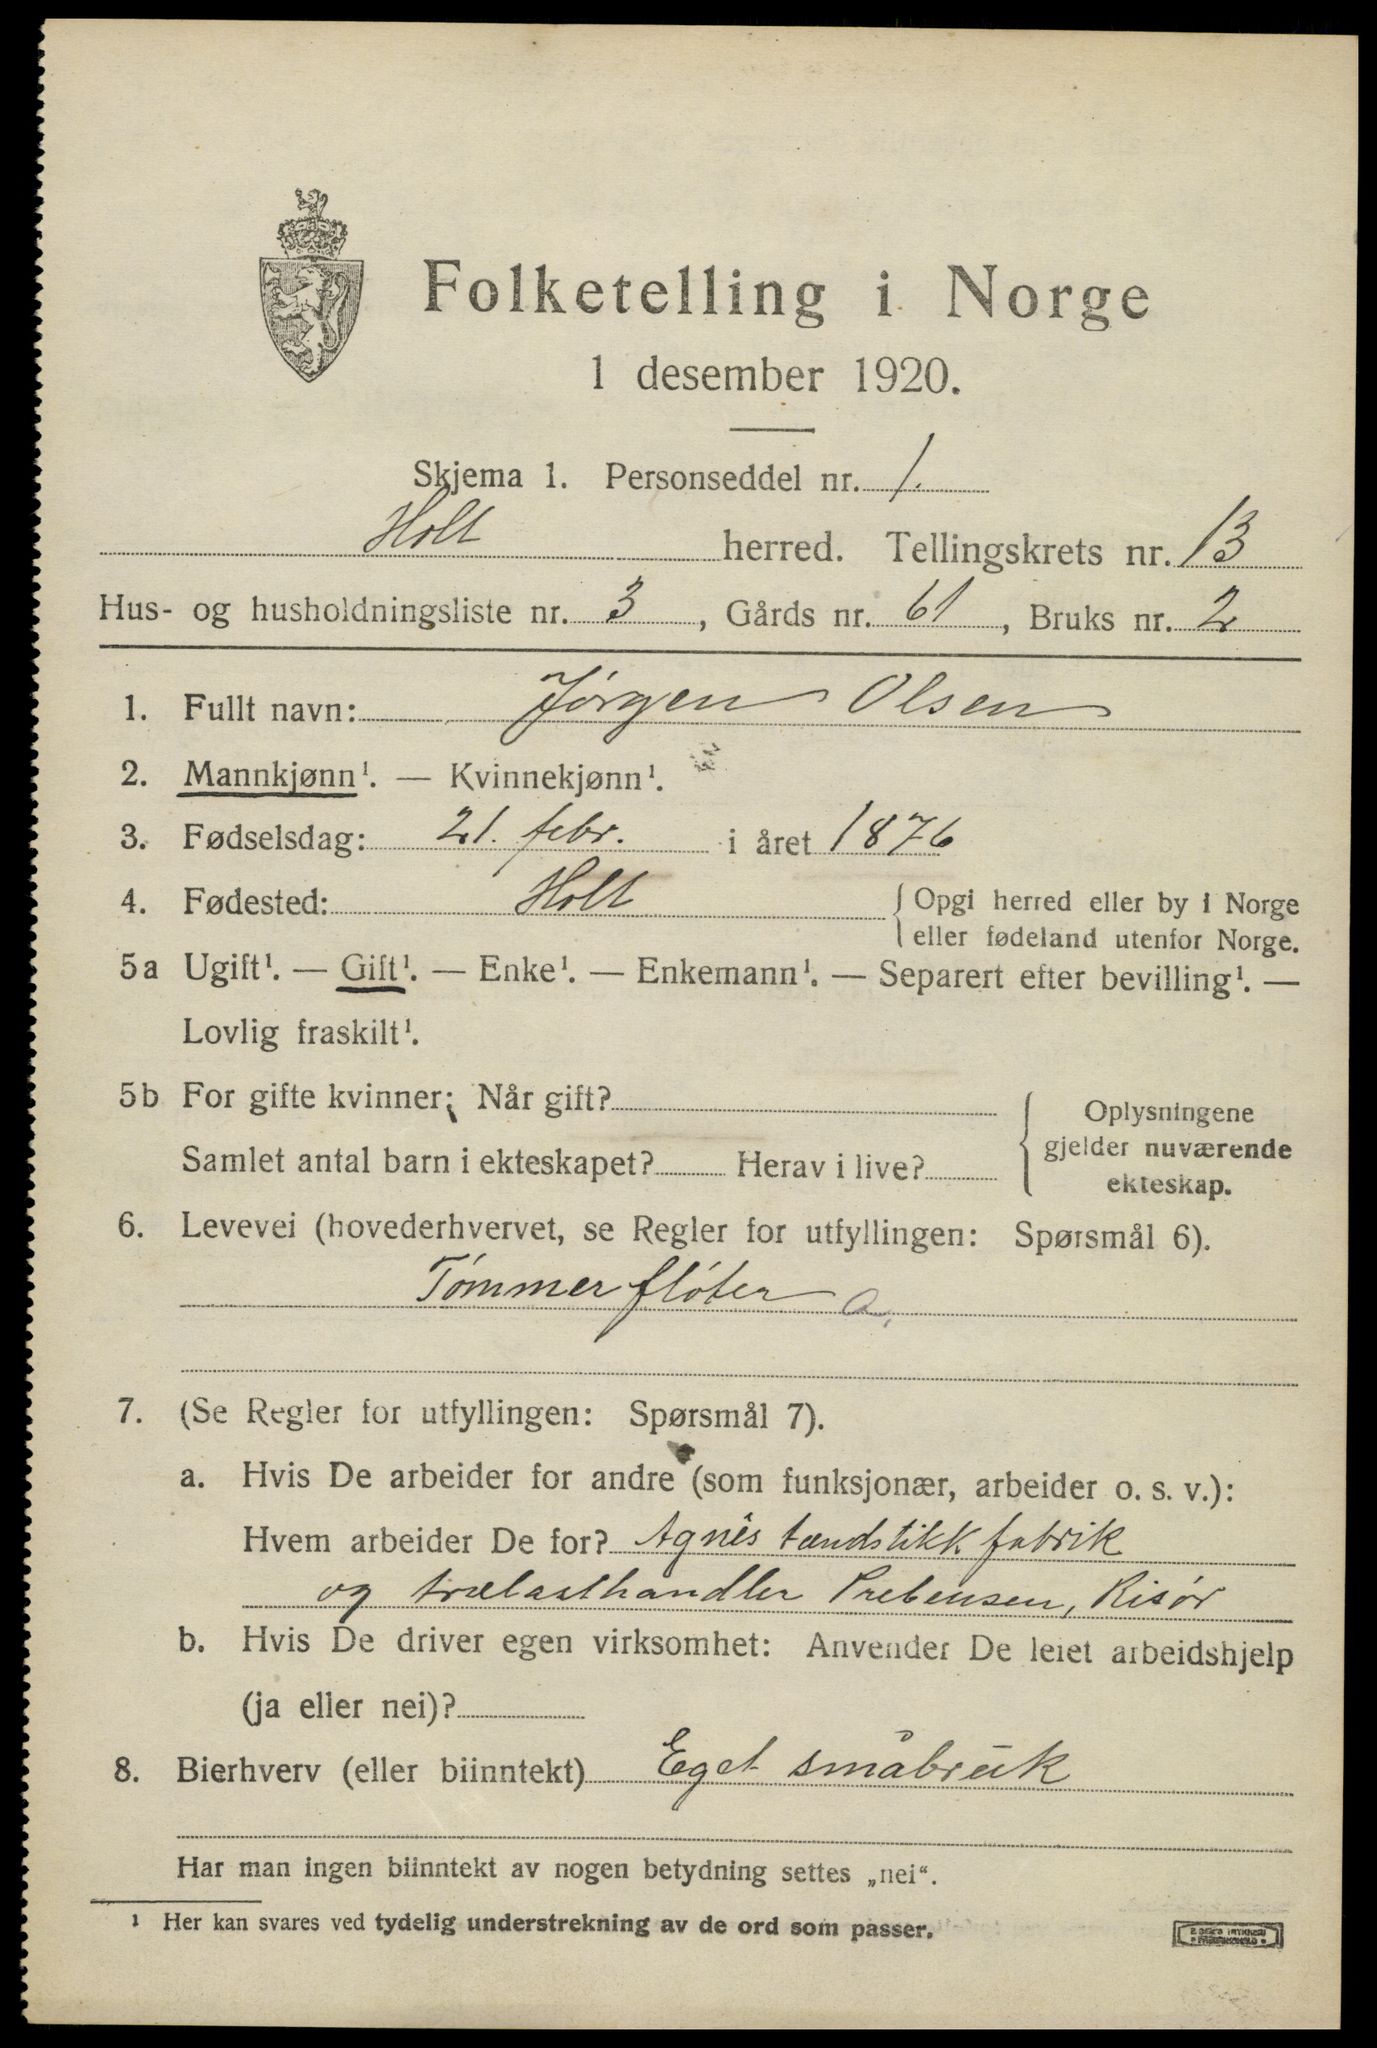 Folketelling i Norge
1 desember 1920.
Skjema 1. Personseddel nr. 1.
Holt herred. Tellingskrets nr. 13
Hus- og husholdningsliste nr. 3, Gårds nr. 61, Bruks nr. 2
1. Fullt navn: Jørgen Olsen
2. Mannkjønn¹. — Kvinnekjønn¹.
3. Fødselsdag: 21. febr. i året 1876
4. Fødested: Holt { Opgi herred eller by i Norge
eller fødeland utenfor Norge.
5a Ugift¹. — Gift¹. — Enke¹. — Enkemann¹. — Separert efter bevilling¹. —
Lovlig fraskilt¹.
5b For gifte kvinner: Når gift?
Samlet antal barn i ekteskapet? Herav i live?
Oplysningene
gjelder nuværende
ekteskap.
6. Levevei (hovederhvervet, se Regler for utfyllingen: Spørsmål 6).
Tømmerfløter a.
7. (Se Regler for utfyllingen: Spørsmål 7).
a. Hvis De arbeider for andre (som funksjonær, arbeider o. s. v.):
Hvem arbeider De for? Agnes tændstikkfabrik
og trælasthandler Prebensen, Risør
b. Hvis De driver egen virksomhet: Anvender De leiet arbeidshjelp
(ja eller nei)?
8. Bierhverv (eller biinntekt) Eget småbruk
Har man ingen biinntekt av nogen betydning settes „nei“.
¹ Her kan svares ved tydelig understrekning av de ord som passer.